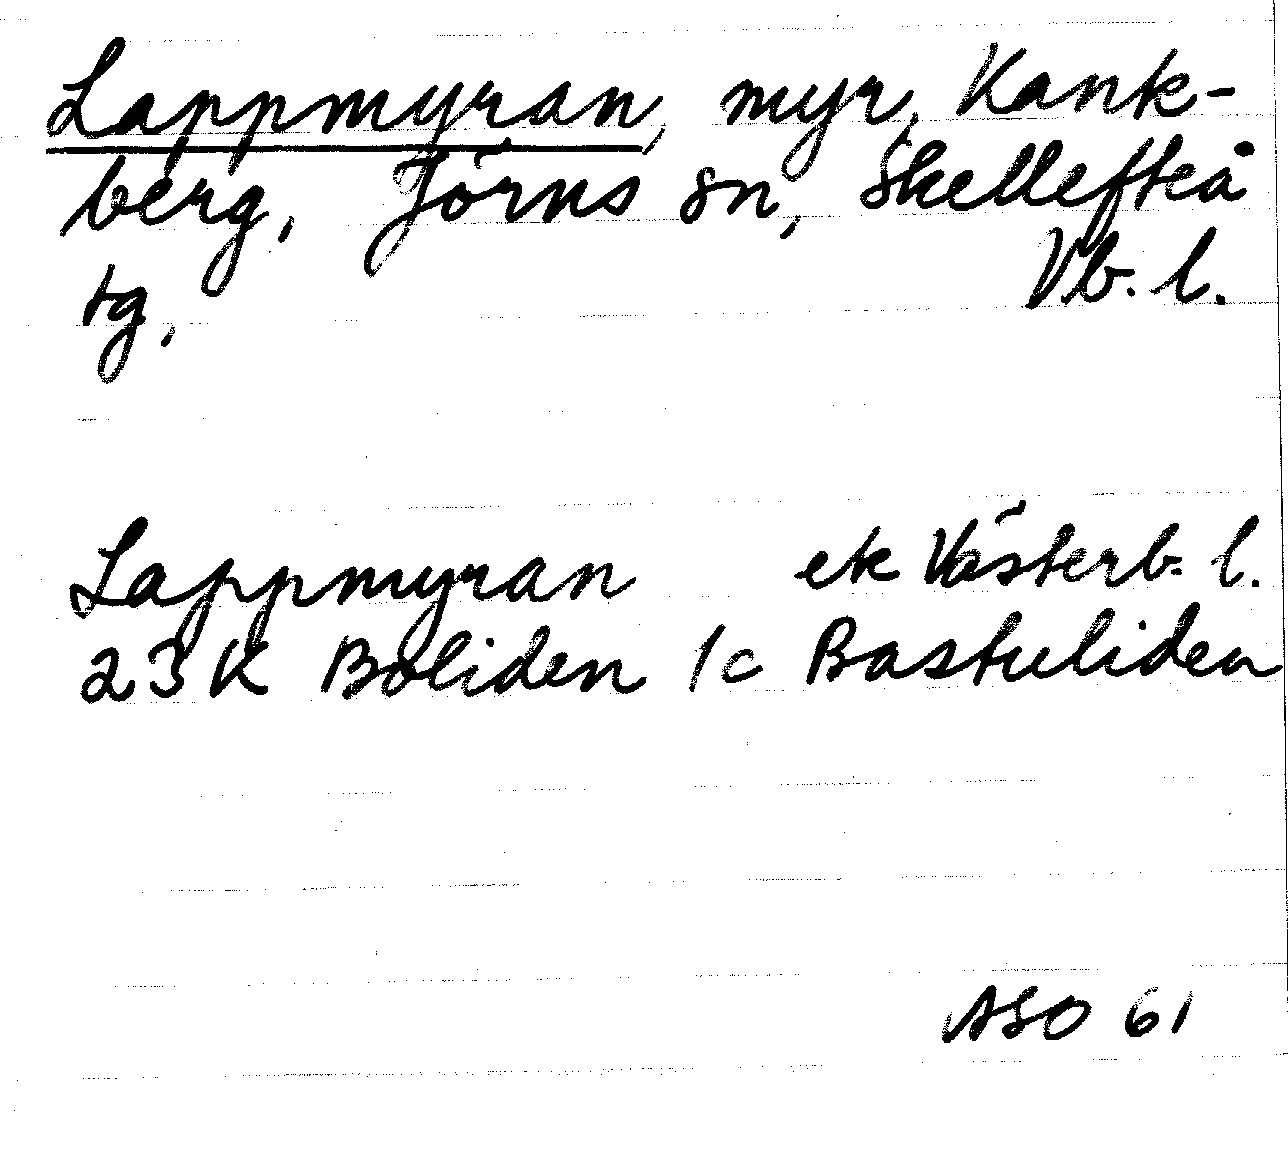 Lappmyran, myr, Kank-
berg, Jörns sn, Skellefteå
tg, Vb. l.
Lappmyran ek Västerb. l.
23 K Boliden 1c Bastuliden
ASO 61